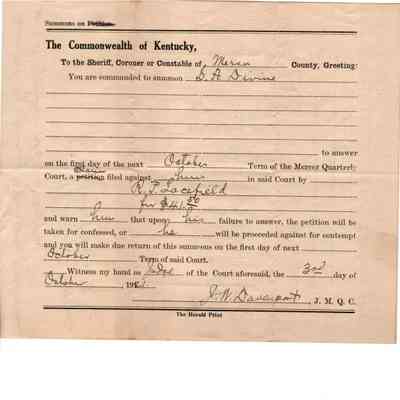 Summons on Petition.
The Commonwealth of Kentucky,
To the Sheriff, Coroner or Constable of Mercer County, Greeting:
You are commanded to summon D. A. Divine
to answer
on the first day of the next October Term of the Mercer Quarterly
Claim
Court, a petition filed against him in said Court by
R. T. Lacefield
for $46 50
and warn him that upon his failure to answer, the petition will be
taken for confessed, or he will be proceeded against for contempt
and you will make due return of this summons on the first day of next
October Term of said Court.
Witness my hand as Judge of the Court aforesaid, the 3rd day of
October 192
J. W. Davenport, J. M. Q. C.
The Herald Print